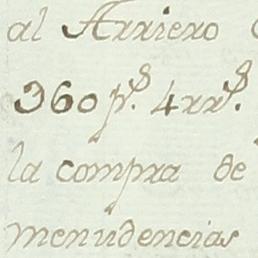 al Arriero
360 p.s 4 rr.s
la compra de
menudencias